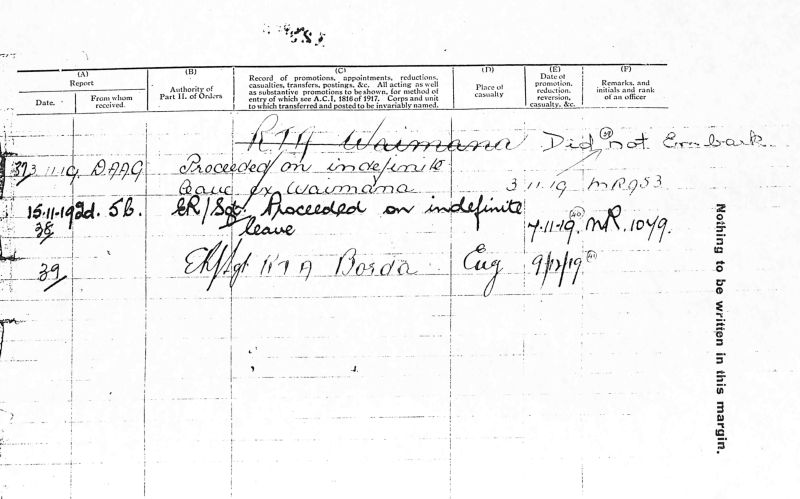 (A) (B) (C) (D) (E) (F)
Report
Date. From whom received.
Authority of Part II. of Orders
Record of promotions, appointments, reductions,
casualties, transfers, postings, &c. All acting as well
as substantive promotions to be shown, for method of
entry of which see A.C.I. 1816 of 1917. Corps and unit
to which transferred and posted to be invariably named.
Place of casualty
Date of promotion, reduction, reversion, casualty, &c.
Remarks, and initials and rank of an officer
RTA Waimana Did not Embark
39
37 3.11.19. DAAG Proceeded on indefinite
leave ex Waimana 3 11.19 MR 953
15.11.19 2d. 5b. ER/Sgt. Proceeded on indefinite
38 leave 7.11.19. 40 MR. 1079.
39 ER/Sgt RTA Borda Eng 9/12/19 41
Nothing to be written in this margin.